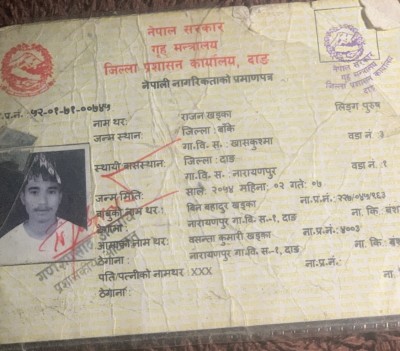 नेपाल सरकार
गृह मन्त्रालय
जिल्ला प्रशासन कार्यालय, दाङ
नेपाली नागरिकताको प्रमाणपत्र
नेपाल सरकार
गृह मन्त्रालय
जिल्ला प्रशासन कार्यालय
दाङ
ना.प्र.नं.: ५२-०१-७१-००७४५
लिङ्गः पुरुष
नाम थर: राजन खड्का
जन्म स्थान: जिल्ला: बाँके
गा.वि.स.: खासकुष्मा वडा नं. ३
स्थायी बासस्थान: जिल्ला: दाङ
गा.वि.स. नारायणपुर वडा नं. १
जन्म मिति: साल: २०५४ महिना: ०२ गते: ०५
बाबुको नाम थर: बिन बहादुर खड्का ना.प्र.नं.: किः बंश
ठेगाना: नारायणपुर गा.वि.स.-१, दाङ
आमाको नाम थर: वसन्ता कुमारी खड्का ना.प्र.नं.: ४००३ ना. किः बंश
ठेगाना: नारायणपुर गा.वि.स.-१, दाङ
पति/पत्नीको नामथर: XXX ना.प्र.नं.:
ठेगाना: